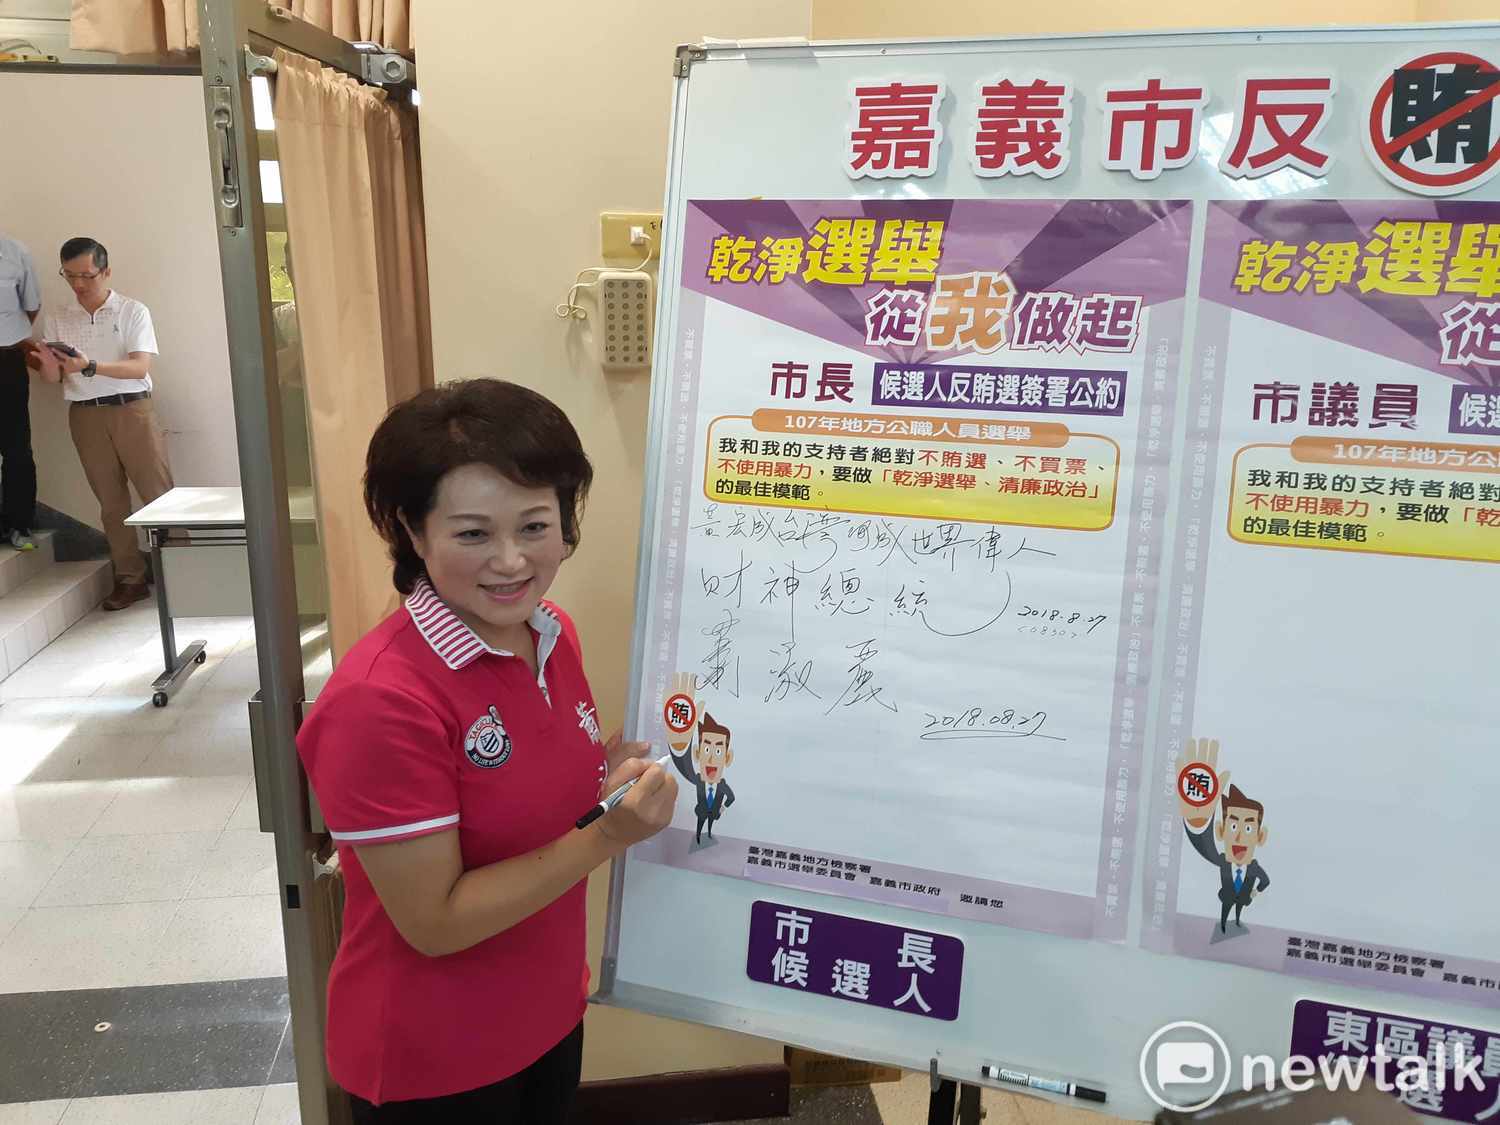 嘉義市反賄
乾淨選舉
從我做起
市長 候選人反賄選簽署公約
107年地方公職人員選舉
我和我的支持者絕對不賄選、不買票、
不使用暴力，要做「乾淨選舉、清廉政治」
的最佳模範。
黃宏成台灣阿成世界偉人
財神總統
2018.8.27
<0830>
蕭淑麗
2018.08.27
賄
臺灣嘉義地方檢察署
嘉義市選舉委員會 嘉義市政府 邀請您
市長
候選人
乾淨選舉
從
市議員 候選
107年地方公
我和我的支持者絕對
不使用暴力，要做「乾
的最佳模範。
賄
臺灣嘉義地方檢察署
嘉義市選舉委員會 嘉義市
東區議員
選人
newtalk